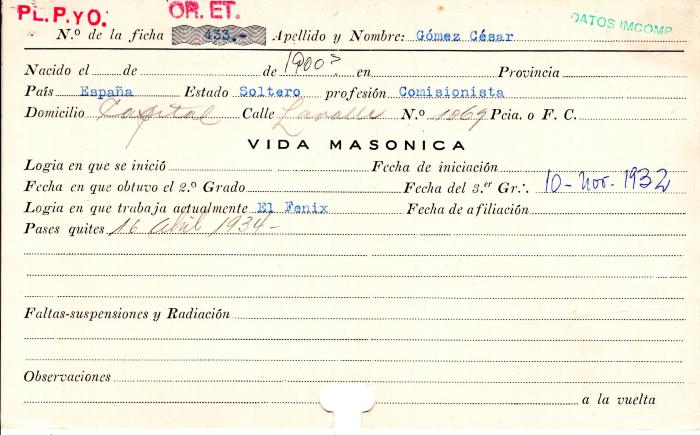 PL. P. y O. OR. ET. DATOS IMCOMP.
N.º de la ficha 433.- Apellido y Nombre: Gómez César
Nacido el de de 1900 en Provincia
País España Estado Soltero profesión Comisionista
Domicilio Capital Calle Lavalle N.º 1869 Pcia. o F. C.
VIDA MASONICA
Logia en que se inició Fecha de iniciación
Fecha en que obtuvo el 2.º Grado Fecha del 3.er Gr.·. 10-Nov. 1932
Logia en que trabaja actualmente El Fenix Fecha de afiliación
Pases quites 16 abril 1934-
Faltas-suspensiones y Radiación
Observaciones
a la vuelta